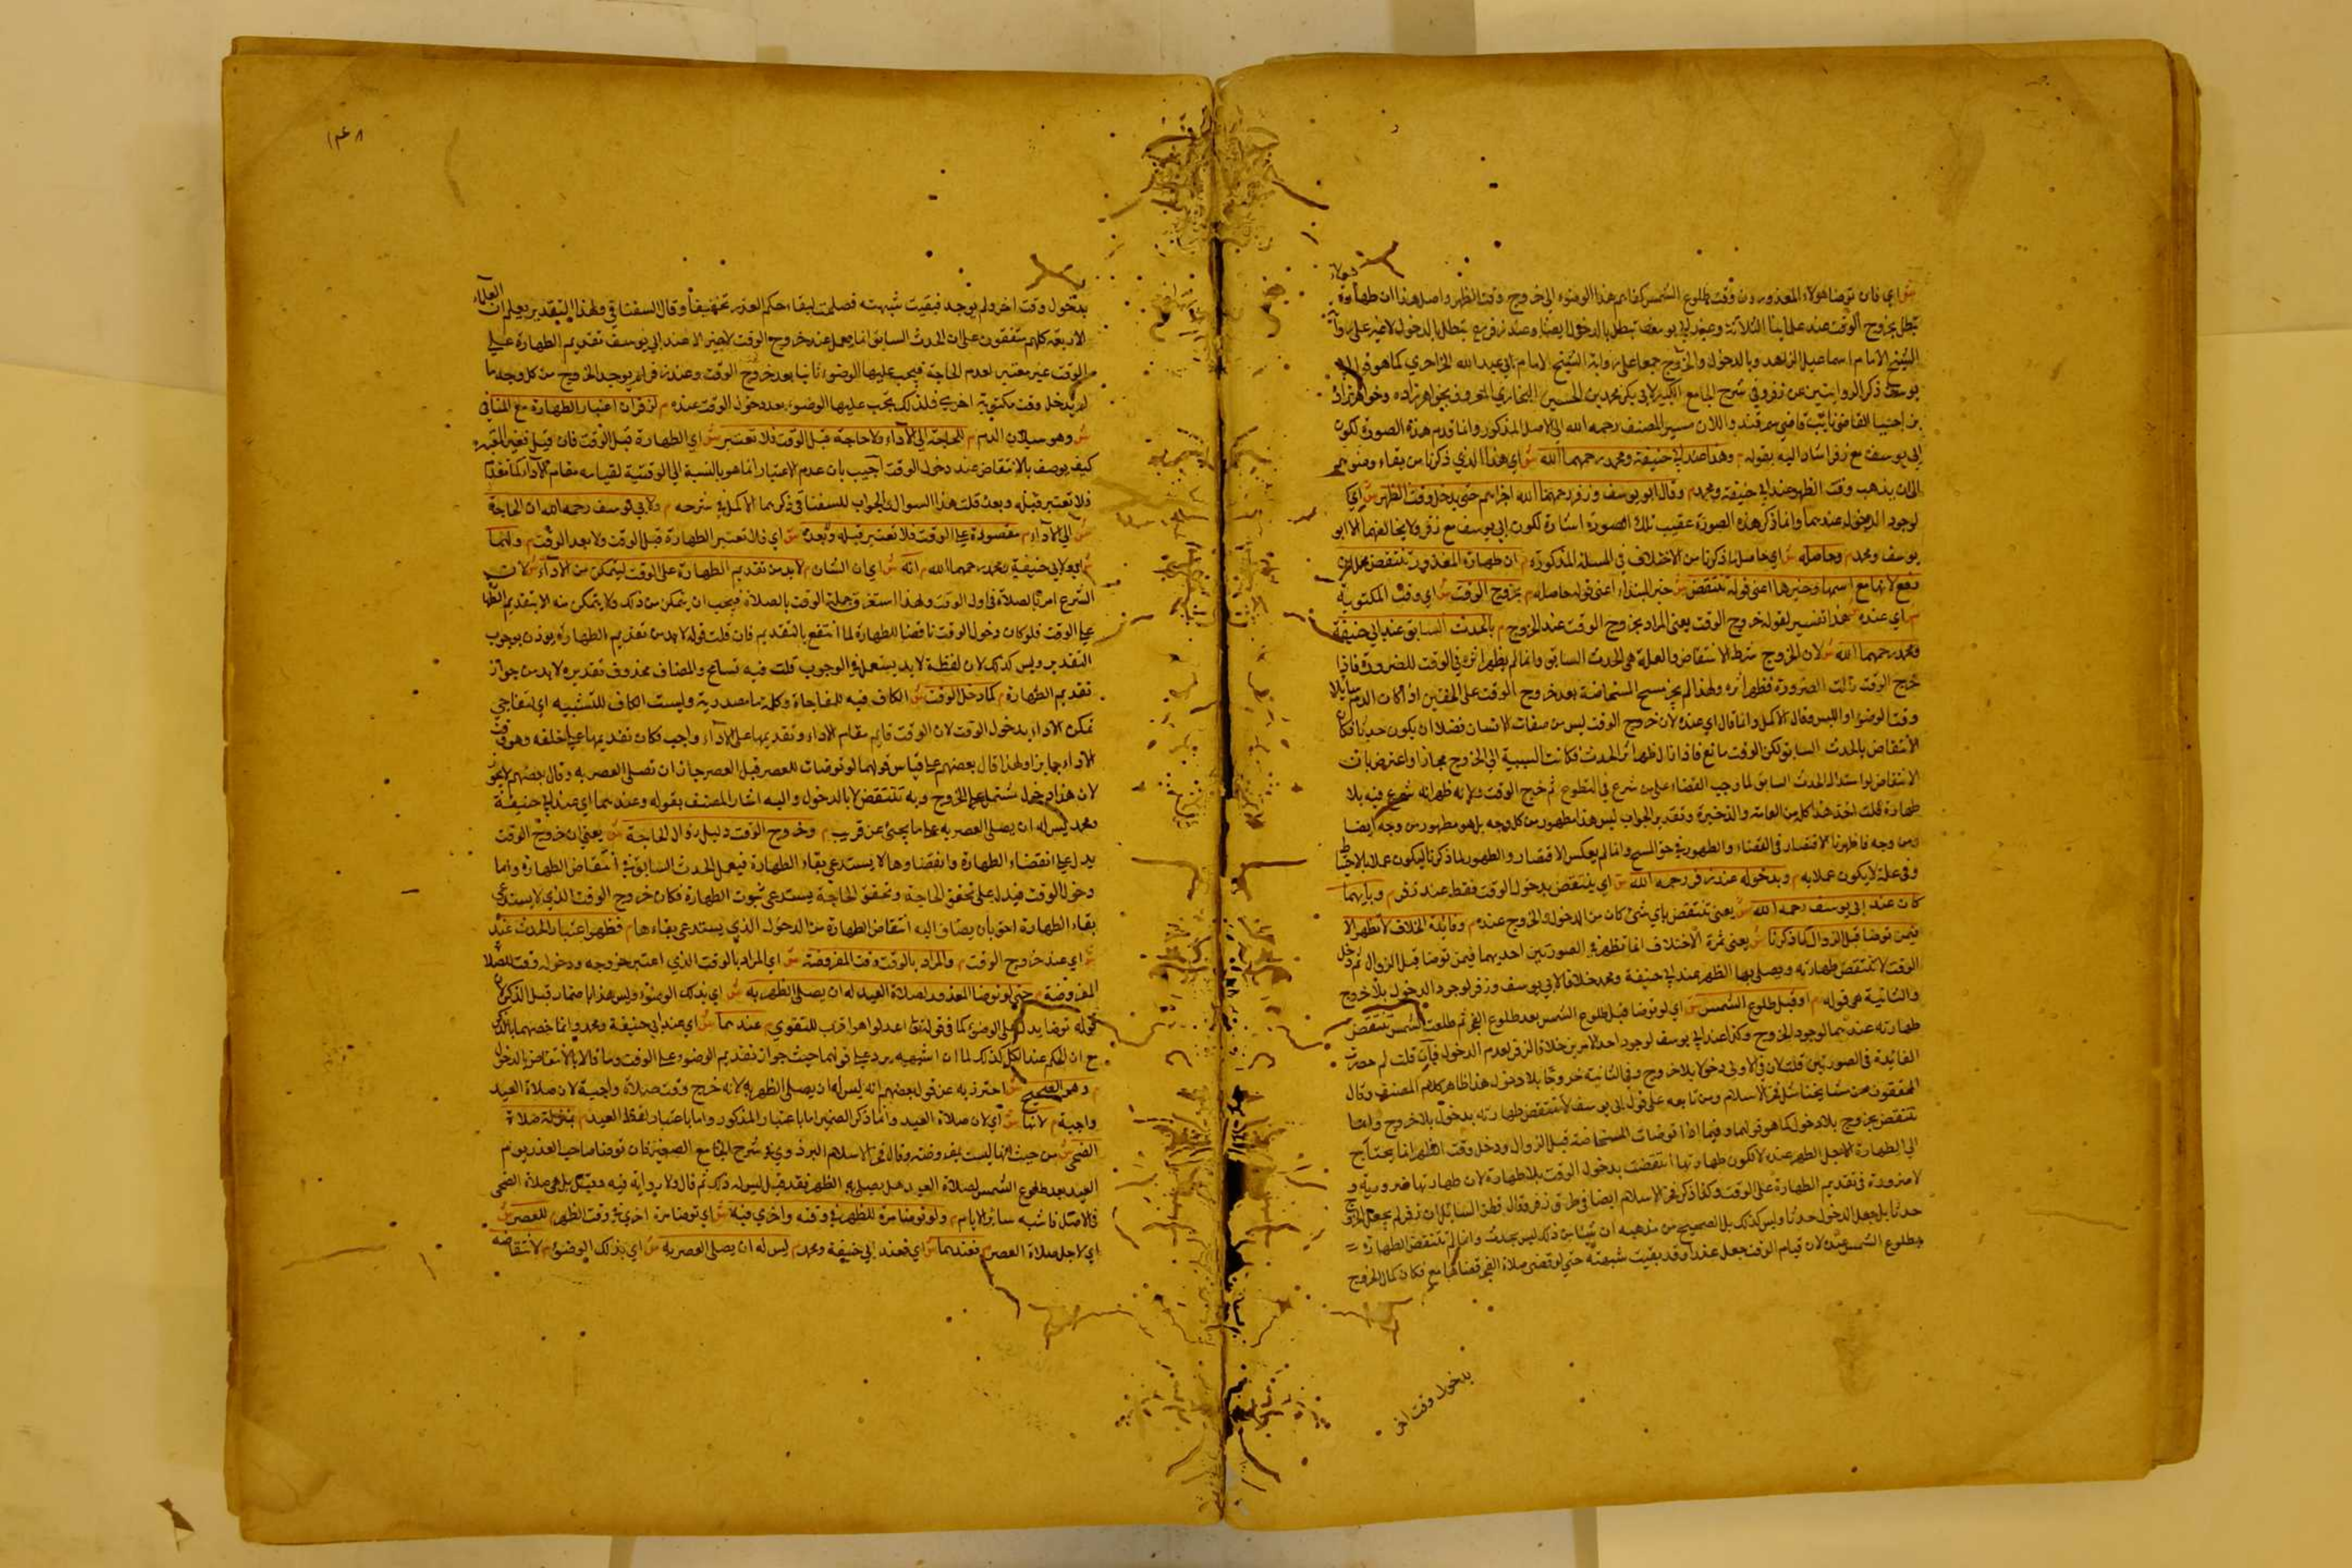 ش اي فان توضا هولاء المعذورون وقت طلوع الشمس كفاهم هذا الوضوء الى خروج وقت الظهر واصل هذا ان طهارة
تبطل بخروج الوقت عند علمائنا الثلاثة وعند ابي يوسف تبطل بالدخول ايضا وعند زفر تبطل بالدخول لا غير على رواية
الشيخ الامام اسماعيل الزاهد وبالدخول والخروج جمعا على رواية الشيخ الامام ابي عبد الله
ذكر الروايتين عن زفر في شرح الجامع الكبير لابي بكر محمد بن الحسين البخاري المعروف بخواهرزاده
القاضي سمرقند والان مسير المصنف رحمه الله الى الاصل المذكور وانما قدم هذه الصورة لكون
ابي يوسف مع زفر اشار اليه بقوله م وهذا عند ابي حنيفة ومحمد رحمهما الله ش اي هذا الذي ذكرنا من بقاء وضوئهم
الى ان يذهب وقت الظهر عند ابي حنيفة ومحمد م وقال ابو يوسف وزفر رحمهما الله اجزاهم حتى يدخل وقت الظهر ش اي
لوجود الدخول عندهما وانما ذكر هذه الصورة عقيب تلك الصورة اشارة لكون ابي يوسف مع زفر ولا يخالفهما الا ابو
يوسف ومحمد م وحاصله ش اي حاصل ما ذكرنا من الاختلاف في المسئلة المذكورة م ان طهارة المعذور تنتقض
مع اسمها وخبرها اعني قوله تنتقض ش خبر المبتداء اعني قوله حاصله م بخروج الوقت ش اي وقت المكتوبة
م اي عنده ش هذا تفسير لقوله خروج الوقت يعني المراد بخروج الوقت عند الخروج م بالحدث السابق عند ابي حنيفة
ومحمد رحمهما الله ش لان الخروج شرط الانتقاض والعلة هي الحدث السابق وانما لم يظهر اثره في الوقت للضرورة فاذا
خرج الوقت زالت الضرورة فظهر اثره ولهذا لم يجز مسح المستحاضة بعد خروج الوقت على الخفين اذا كان الدم سايلا
وقت الوضوء او اللبس وقال الاكمل وانما قال اي عنده لان خروج الوقت ليس من صفات الانسان فضلا ان يكون حدثا فكان
الانتقاض بالحدث السابق لكن الوقت مانع فاذا زال ظهر اثر الحدث فكانت السببية الى الخروج مجازا واعترض بان
الانتقاض لو استند الى الحدث السابق لما وجب القضاء على من شرع في التطوع ثم خرج الوقت لانه ظهر انه شرع فيه بلا
طهارة قلت اخذ هذا كل من العامة والذخيرة وتقدير الجواب ليس هذا بظهور من كل وجه بل هو ظهور من وجه ايضا
ومن وجه فاظهرنا الاقتصار في القضاء والظهور في حق المسح وانما لم يعكس الاقتصار والظهور لما ذكرنا ليكون عملا بالاحتياط
وفي عكسه لا يكون عملا به م وبدخوله عند زفر رحمه الله ش اي ينتقض بدخول الوقت فقط عند زفر م وبايهما
كان عند ابي يوسف رحمه الله ش يعني تنتقض باي شئ كان من الدخول والخروج عنده م وفائدة الخلاف لا تظهر الا
فيمن توضا قبل الزوال كما ذكرنا ش يعني ثمرة الاختلاف انما تظهر في الصورتين احديهما فيمن توضا قبل الزوال ثم دخل
الوقت لا تنتقض طهارته ويصلي بها الظهر عند ابي حنيفة ومحمد خلافا لابي يوسف وزفر لوجود الدخول بلا خروج
والثانية هي قوله م او قبل طلوع الشمس ش اي لو توضا قبل طلوع الشمس بعد طلوع الفجر ثم طلعت الشمس تنتقض
طهارته عندهما لوجود الخروج وكذا عند ابي يوسف لوجود احد الامرين خلافا لزفر لعدم الدخول فان قلت لم حصرت
الفائدة في الصورتين قلت لان في الاولى دخولا بلا خروج وفي الثانية خروجا بلا دخول هذا ظاهر كلام المصنف وقال
المحققون من مشايخنا مثل فخر الاسلام ومن تابعه على قول ابي يوسف لا تنتقض طهارته بدخول بلا خروج وانما
تنتقض بخروج بلا دخول كما هو قولهما وفيما اذا توضات المستحاضة قبل الزوال ودخل وقت الظهر انما يحتاج
الى الطهارة لاجل الظهر عنده لا لكون طهارتها انتقضت بدخول الوقت بلا طهارة لان طهارتها ضرورية و
لا ضرورة في تقديم الطهارة على الوقت وكذا ذكر فخر الاسلام ايضا في طرق زفر وقال فظن السائل ان زفر لم يجعل الخروج
حدثا بل جعل الدخول حدثا وليس كذلك بل الصحيح من مذهبه ان شيئا من ذلك ليس بحدث وانما لم تنتقض الطهارة
بطلوع الشمس عنده لان قيام الوقت جعل عذرا وقد بقيت شبهته حتى لو قضى صلاة الفجر قضاها مع فكان كمال الخروج
بدخول وقت اخر
١٤٨
بدخول وقت اخر ولم يوجد فبقيت شبهته فصلحت لبقاء حكم العذر تخفيفا وقال السغناقي وبهذا التقدير يعلم ان العلماء
الاربعة كلهم متفقون على ان الحدث السابق انما يعمل عند خروج الوقت لا غير الا عند ابي يوسف تقديم الطهارة على
الوقت غير معتبر لعدم الحاجة فيجب عليها الوضوء ثانيا بعد خروج الوقت وعند زفر لم يوجد الخروج من كل وجه ما
لم يدخل وقت مكتوبة اخرى فلذلك يجب عليها الوضوء بعد دخول الوقت عنده م لزفر ان اعتبار الطهارة مع المنافي
ش وهو سيلان الدم م للحاجة الى الاداء ولا حاجة قبل الوقت فلا تعتبر ش اي الطهارة قبل الوقت فان قيل فغير المعتبر
كيف يوصف بالانتقاض عند دخول الوقت اجيب بان عدم الاعتبار انما هو بالنسبة الى الوقتية لقيامه مقام الاداء
فلا تعتبر قبله وبعده قلت هذا السوال والجواب للسغناقي ذكرهما الاكمل في شرحه م ولابي يوسف رحمه الله ان الحاجة
ش الى الاداء م مقصورة على الوقت فلا تعتبر قبله وبعده ش اي فلا تعتبر الطهارة قبل الوقت ولا بعد الوقت م ولهما
ش اي ولابي حنيفة ومحمد رحمهما الله م انه ش اي ان الشان م لا بد من تقديم الطهارة على الوقت ليتمكن من الاداء ش لان
الشرع امرنا بالصلاة في اول الوقت ولهذا استغرق جملة الوقت بالصلاة فيجب ان يتمكن من ذلك ولا يتمكن منه الا بتقديم الطهارة
على الوقت فلو كان دخول الوقت ناقضا للطهارة لما انتفع بالتقديم فان قلت قوله لا بد من تقديم الطهارة يوذن بوجوب
التقديم وليس كذلك لان لفظة لا بد يستعمل في الوجوب قلت فيه تسامح والمضاف محذوف تقديره لا بد من جواز
تقديم الطهارة م كما دخل الوقت ش الكاف فيه للمفاجاة وكلمة ما مصدرية وليست الكاف للتشبيه اي لتفاجي
تمكن الاداء بدخول الوقت لان الوقت قايم مقام الاداء وتقديمها على الاداء واجب فكان تقديمها على خلفه وهو وقت
الاداء جايزا ولهذا قال بعضهم على قياس قولهما لو توضات للعصر قبل العصر جاز ان تصلي العصر به وقال بعضهم لا يجوز
لان هذا دخول مشتمل على الخروج وبه تنتقض لا بالدخول واليه اشار المصنف بقوله وعندهما اي عند ابي حنيفة
ومحمد ليس له ان يصلي العصر به على ما يجئ عن قريب م وخروج الوقت دليل زوال الحاجة ش يعني ان خروج الوقت
يدل على انقضاء الطهارة وانقضاوها لا يستدعي بقاء الطهارة فيعمل الحدث السابق في انتقاض الطهارة واما
دخول الوقت فيدل على تحقق الحاجة وتحقق الحاجة يستدعي ثبوت الطهارة فكان خروج الوقت الذي لا يستدعي
بقاء الطهارة احق بان يضاف اليه انتقاض الطهارة من الدخول الذي يستدعي بقاءها م فظهر اعتبار الحدث عنده
ش اي عند خروج الوقت م والمراد بالوقت وقت المفروضة ش اي المراد بالوقت الذي اعتبر خروجه ودخوله وقت للصلاة
المفروضة م حتى لو توضا المعذور لصلاة العيد له ان يصلي الظهر به ش اي بذلك الوضوء وليس هذا باضمار قبل الذكر لان
قوله توضا يدل على الوضوء كما في قوله تعالى اعدلوا هو اقرب للتقوى م عندهما ش اي عند ابي حنيفة ومحمد وانما خصهما بالذكر
مع ان الحكم عند الكل كذلك لما ان الشبهة يرد على قولهما حيث جواز تقديم الوضوء على الوقت وما قالا بالانتقاض بالدخول
م وهو الصحيح ش احترز به عن قول بعضهم انه ليس له ان يصلي الظهر به لانه خرج وقت صلاة واجبة لان صلاة العيد
واجبة م لانها ش اي لان صلاة العيد وانما ذكر الضمير اما باعتبار المذكور واما باعتبار لفظ العيد م بمنزلة صلاة
الضحى ش من حيث انها ليست بمفروضة وقال فخر الاسلام البزدوي في شرح الجامع الصغير فان توضا صاحب العذر يوم
العيد بعد طلوع الشمس لصلاة العيد هل يصلي به الظهر فقد قيل ليس له ذلك ثم قال ولا رواية فيه وقيل بل هي صلاة الضحى
في الاصل فاشبه ساير الايام م ولو توضا مرة للظهر في وقته واخرى فيه ش اي توضا مرة اخرى في وقت الظهر م للعصر ش
اي لاجل صلاة العصر م فعندهما ش اي فعند ابي حنيفة ومحمد م ليس له ان يصلي العصر به ش اي بذلك الوضوء م لانتقاضه